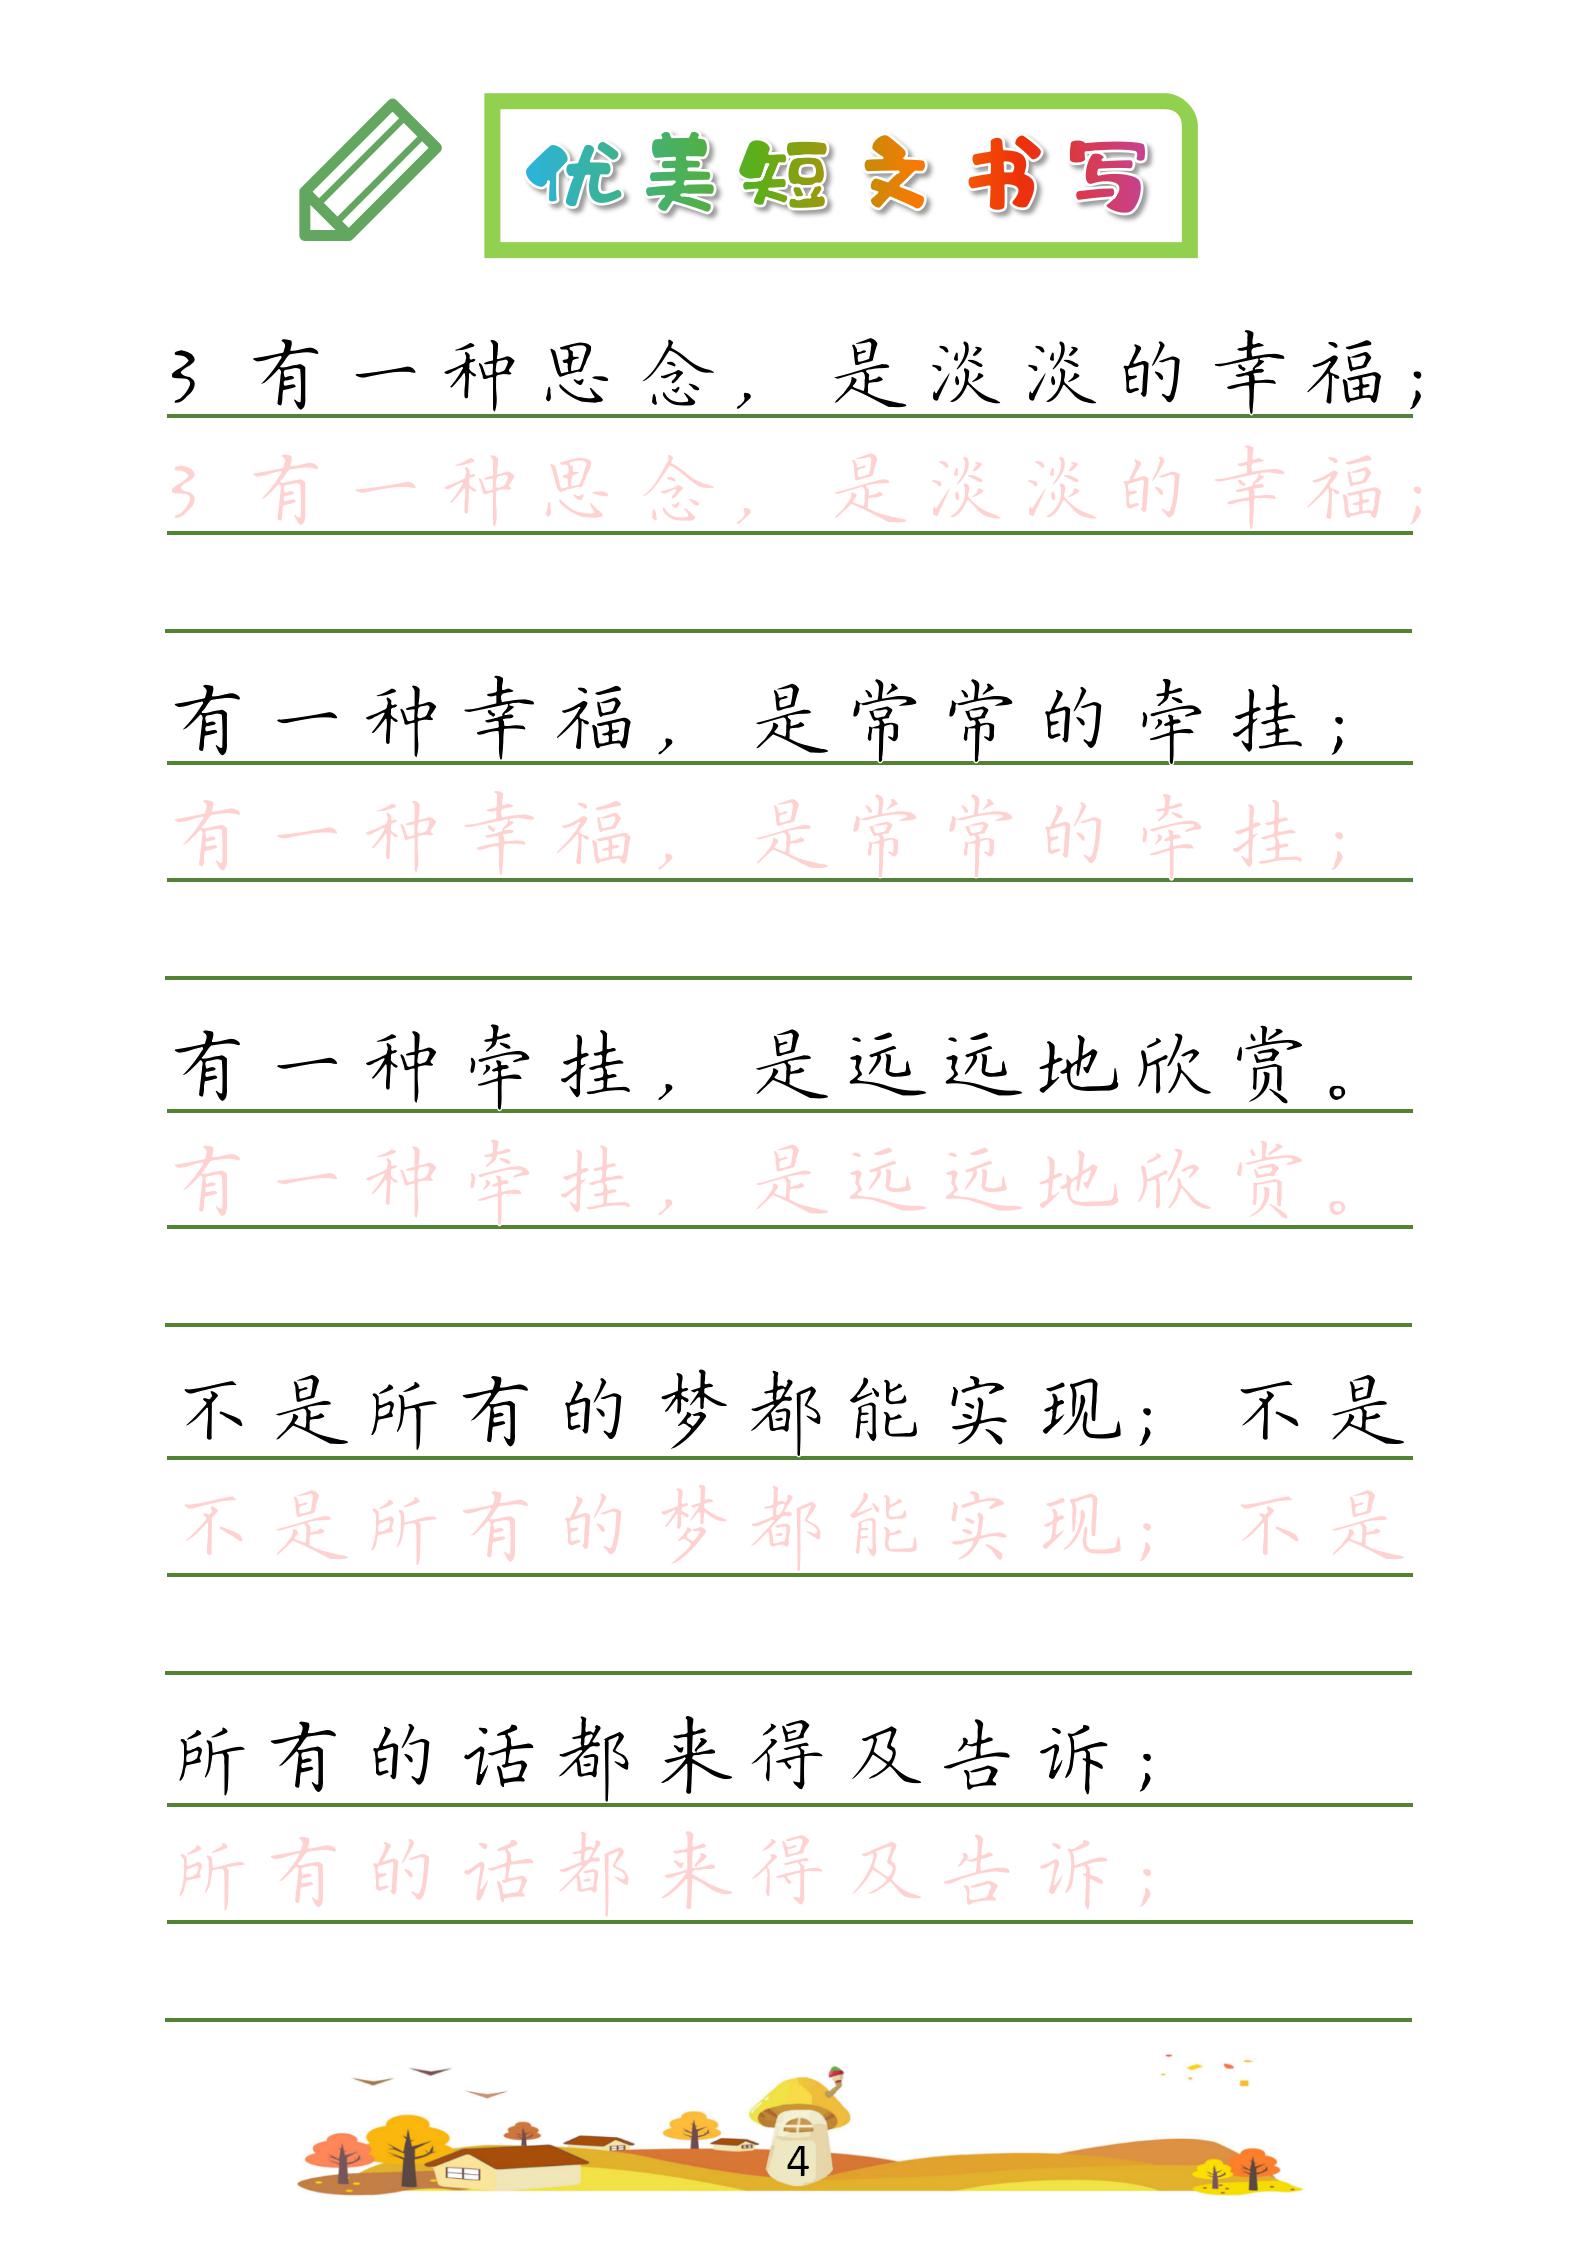 优美短文书写
3 有一种思念，是淡淡的幸福；
3 有一种思念，是淡淡的幸福；
有一种幸福，是常常的牵挂；
有一种幸福，是常常的牵挂；
有一种牵挂，是远远地欣赏。
有一种牵挂，是远远地欣赏。
不是所有的梦都能实现；不是
不是所有的梦都能实现；不是
所有的话都来得及告诉；
所有的话都来得及告诉；
4